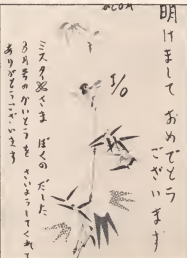 明けまして おめでとう
ございます
1/0
ミスターさま ぼくの だした
8月号の かいとうを さいようしてくれて
ありがとうございます